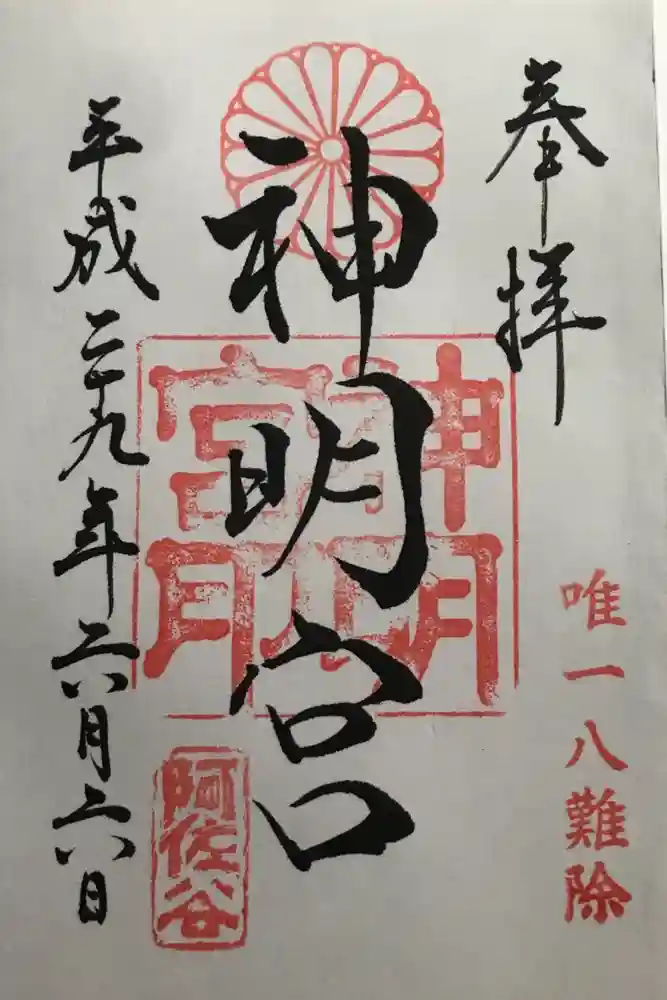 奉拝
唯一八難除
神明宮
神明宮印
阿佐谷
平成二十九年六月六日